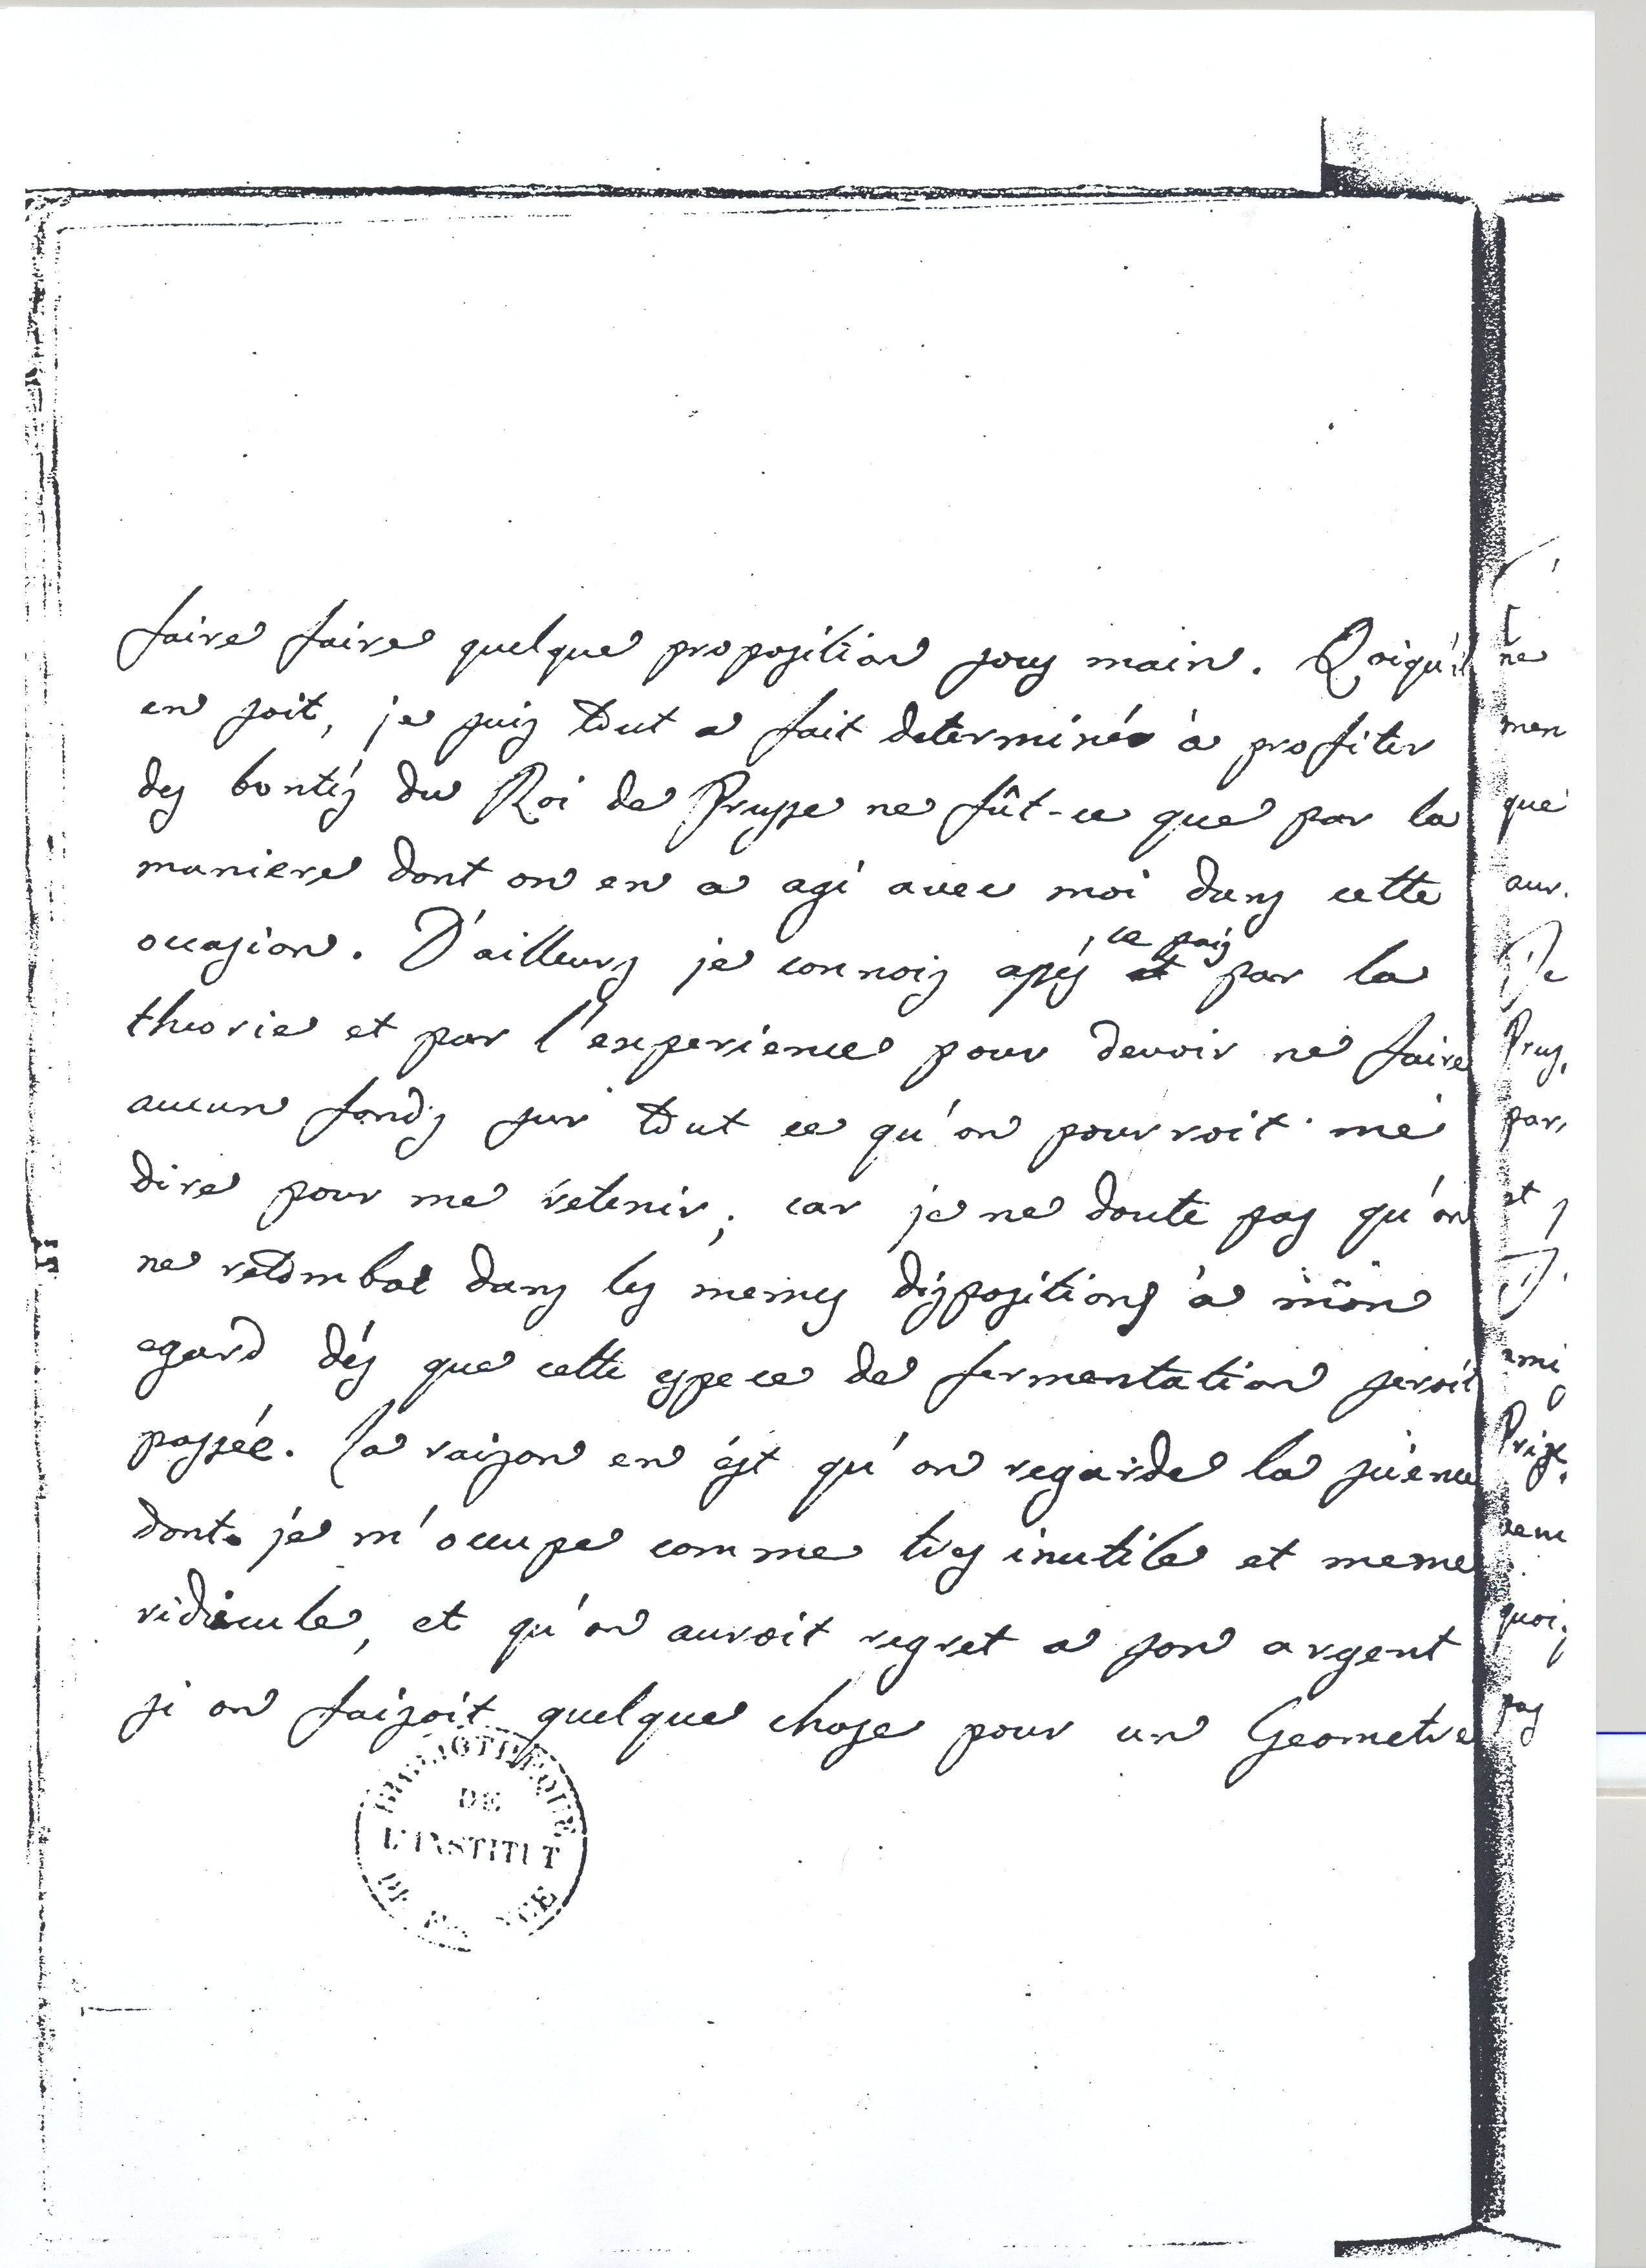 faire faire quelque proposition sous main. Qoiqu'il
en soit, je suis tout a fait determiné à profiter
des bontés du Roi de Prusse ne fût-ce que par la
maniere dont on en a agi avec moi dans cette
occasion. D'ailleurs je connois assés ce païs par la
theorie et par l'experience pour devoir ne faire
aucun fonds sur tout ce qu'on pourroit me
dire pour me retenir; car je ne doute pas qu'on
ne retombat dans les memes dispositions à mon
egard dés que cette espece de fermentation seroit
passée. la raison en est qu'on regarde la science
dont je m'occupe comme tres inutile et meme
ridicule, et qu'on auroit regret a son argent
si on faisoit quelque chose pour un Geometre
BIBLIOTHEQUE
DE
L'INSTITUT
DE FRANCE
ne
men
que
aur.
De
Prus.
par,
et
ami
quoi,
pas